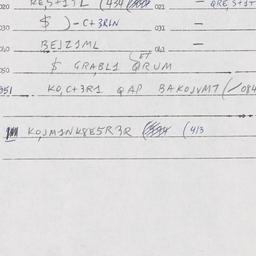 020 RE,S+1TL (434 021 — QRE,S+1T
030 $ ) - C+3RIN 031 —
040 BEJZ1ML 041 —
ET
050 $ GRABL1 QRUM
051 KO,C+3R1 QAP BAKOJVMT (/084
KOJM1NK8E5R3R (413